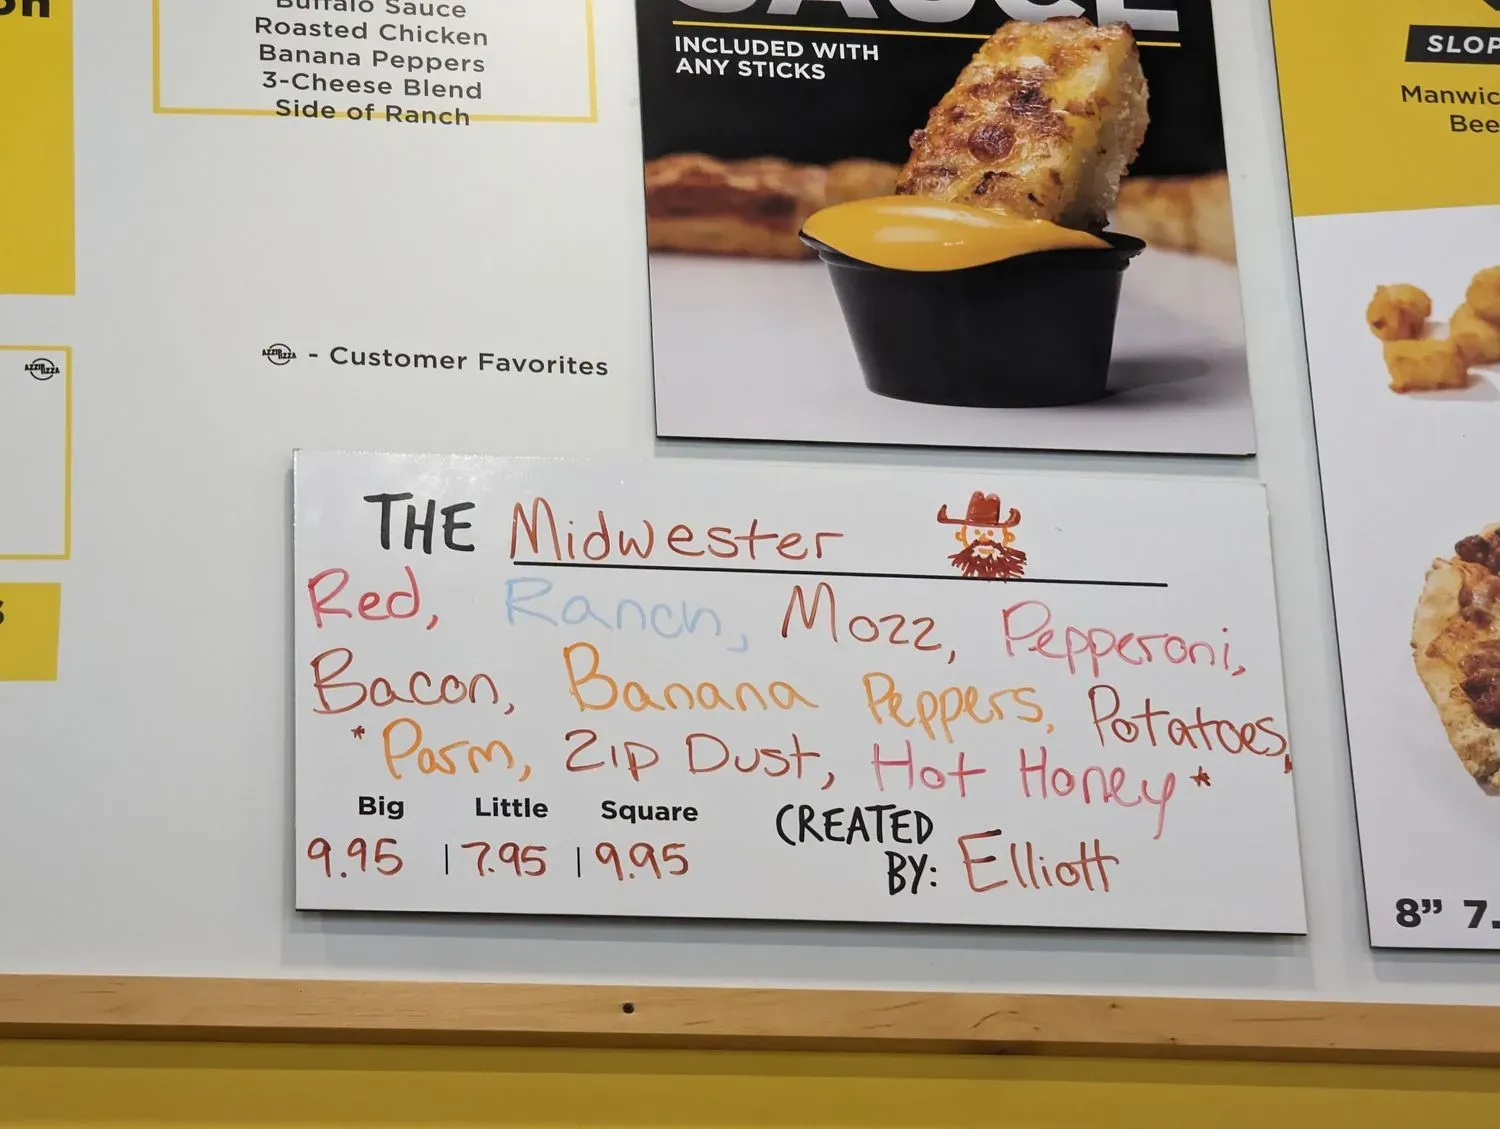 Buffalo Sauce
Roasted Chicken
Banana Peppers
3-Cheese Blend
Side of Ranch
AZZIP PIZZA - Customer Favorites
AZZIP PIZZA
SAUCE
INCLUDED WITH
ANY STICKS
THE Midwester
Red, Ranch, Mozz, Pepperoni,
Bacon, Banana Peppers, Potatoes,
*Parm, Zip Dust, Hot Honey*
Big Little Square
9.95 | 7.95 | 9.95
CREATED
BY: Elliott
8” 7.